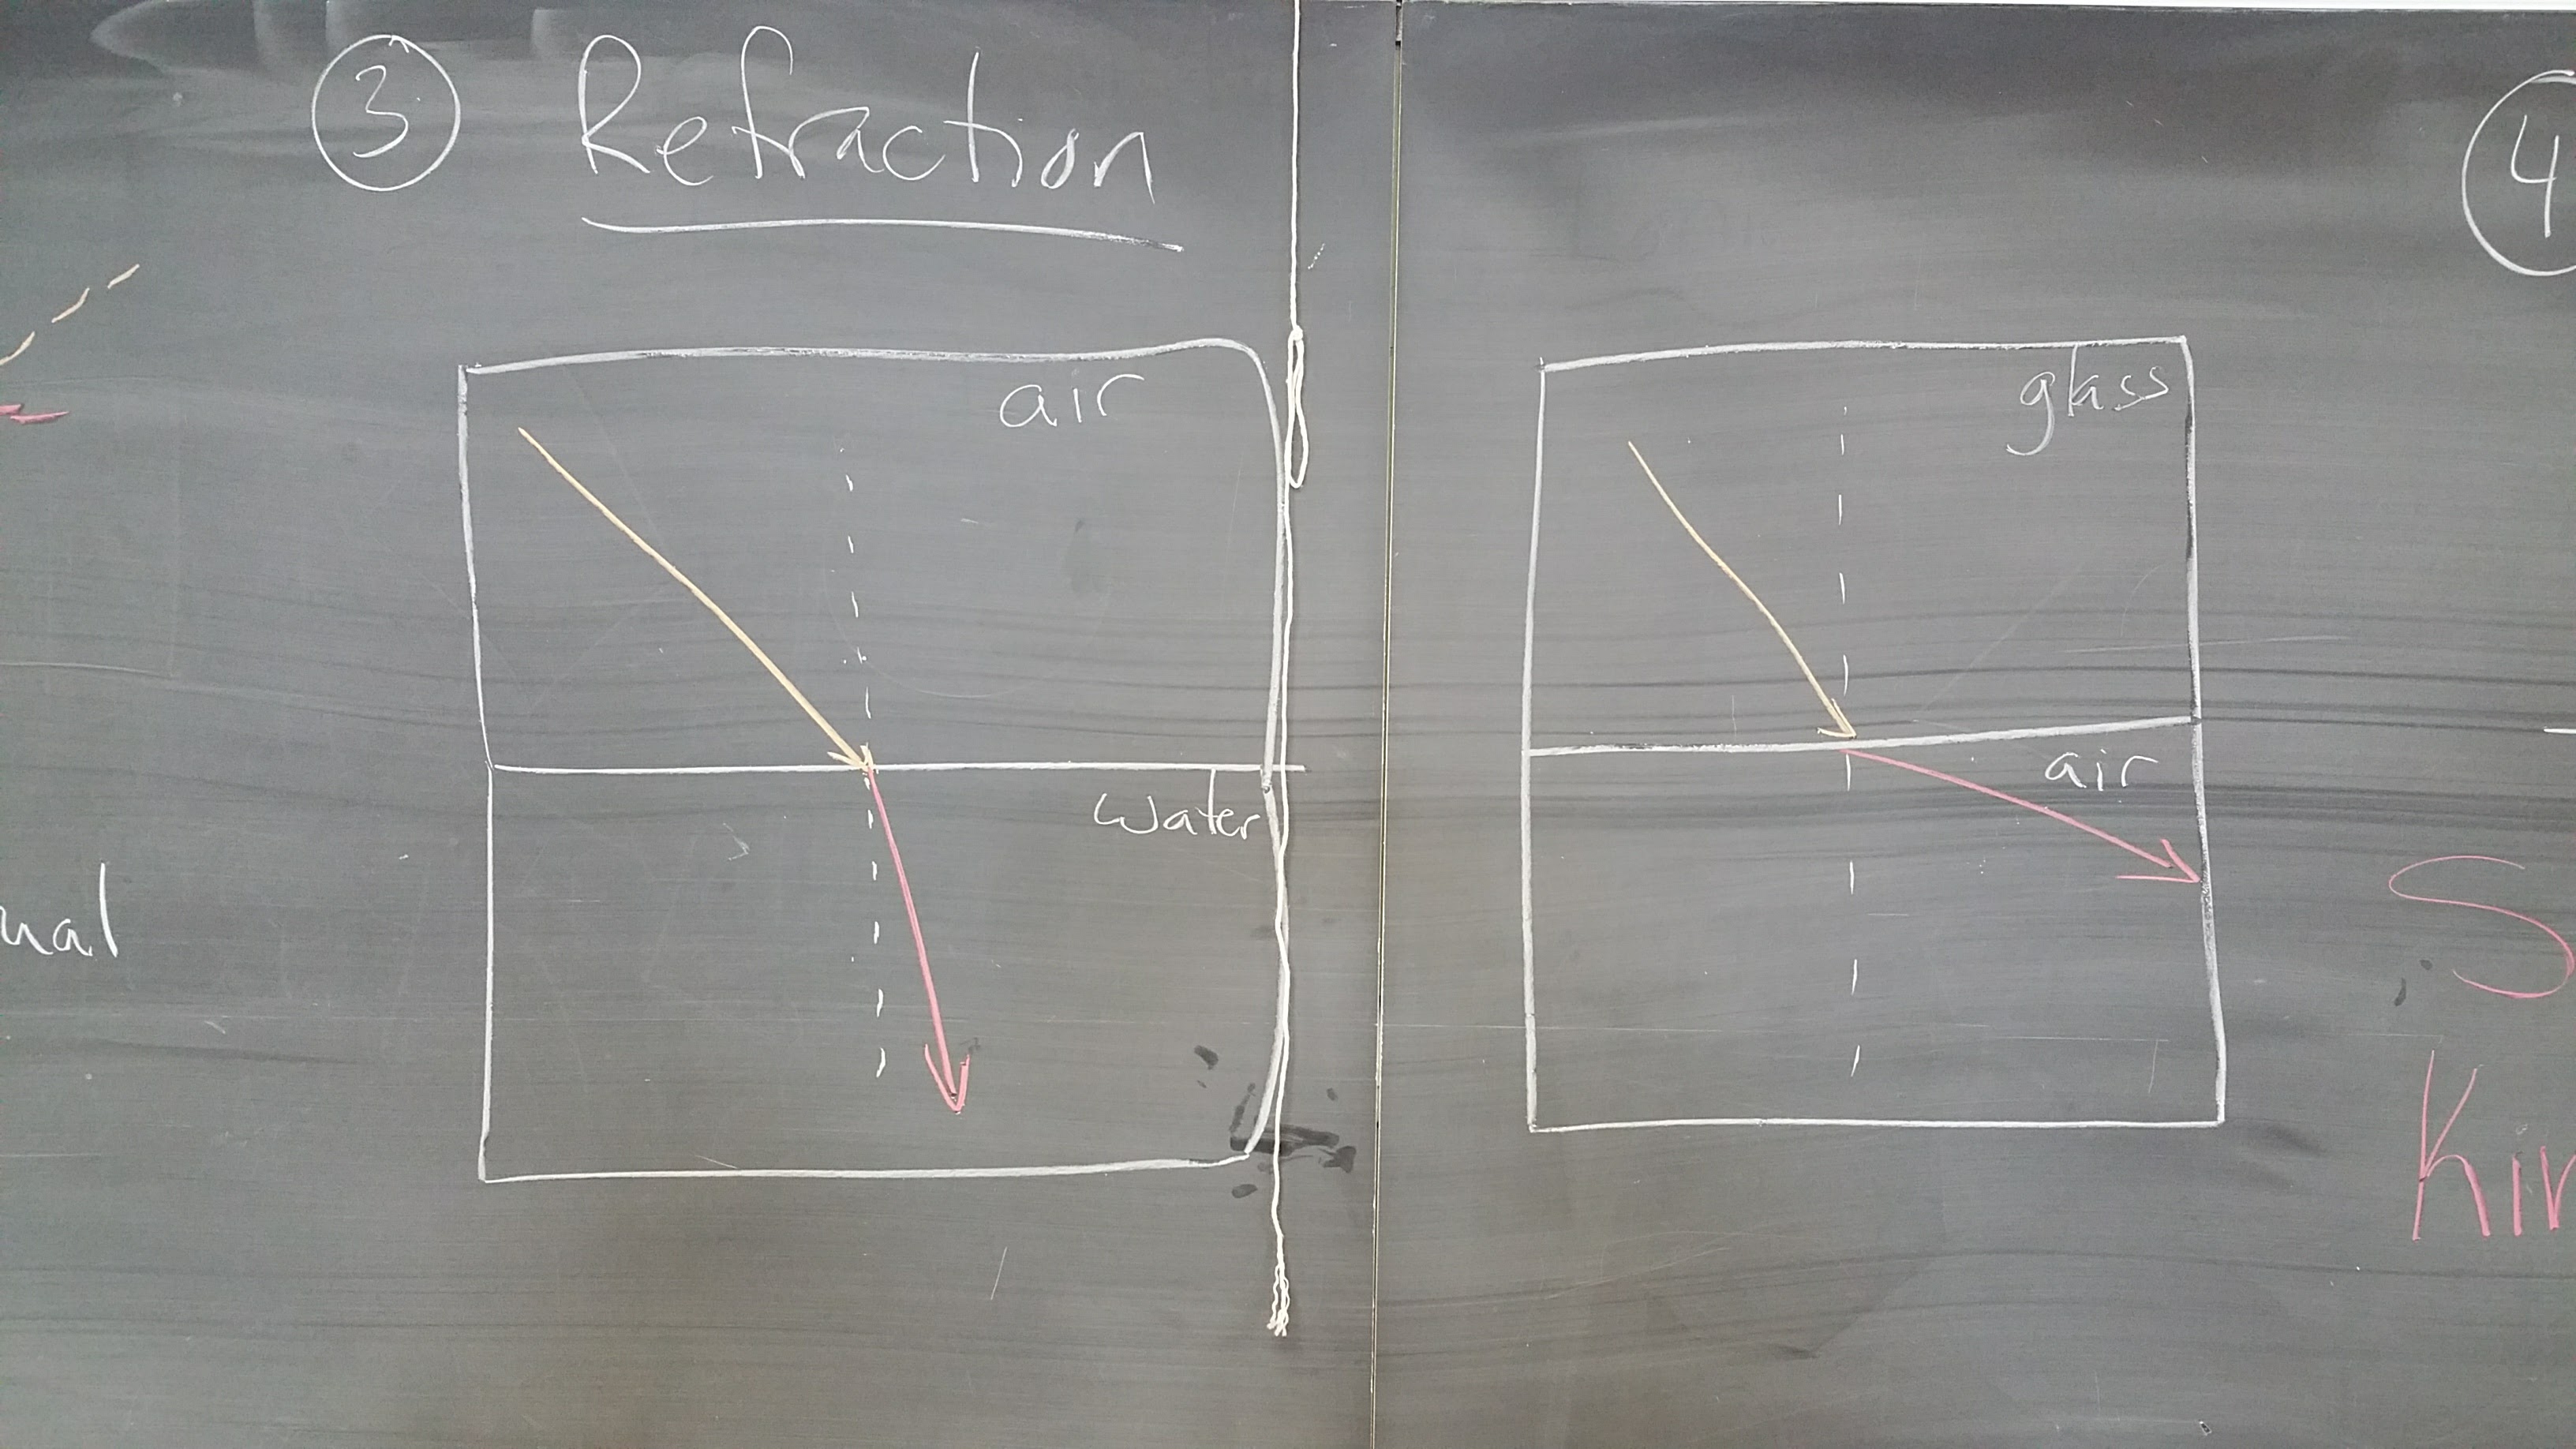 3 Refraction
air
water
glass
air
4
ual
S
Kir